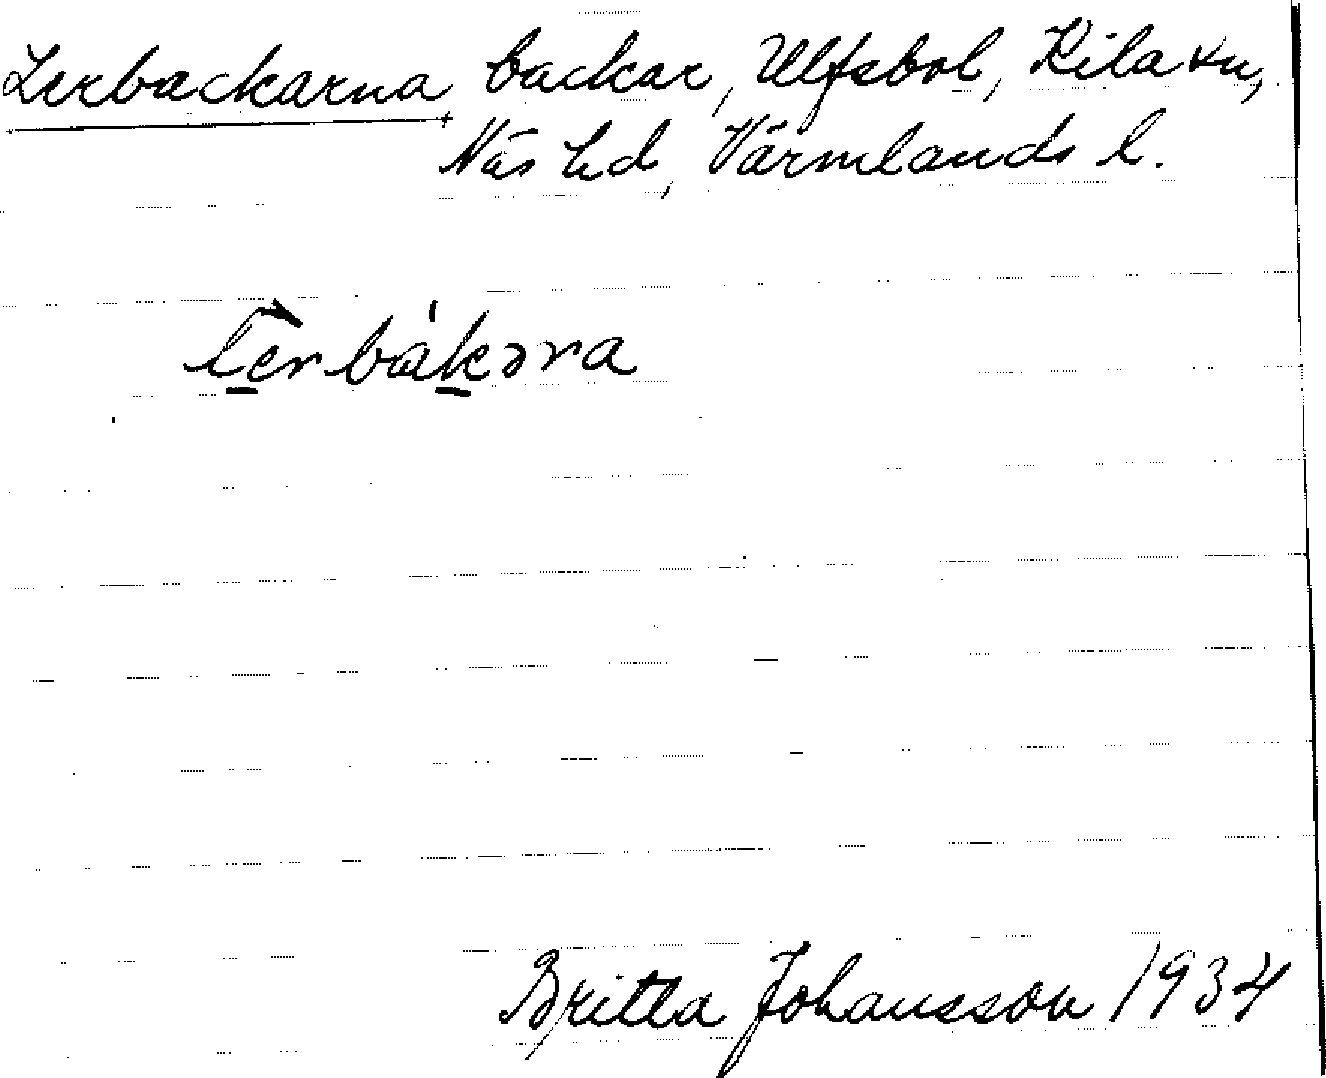 Lerbackarna, backar, Ulfsbol, Kila sn,
Näs hd, Värmlands l.
lerbakəra
Britta Johansson 1934